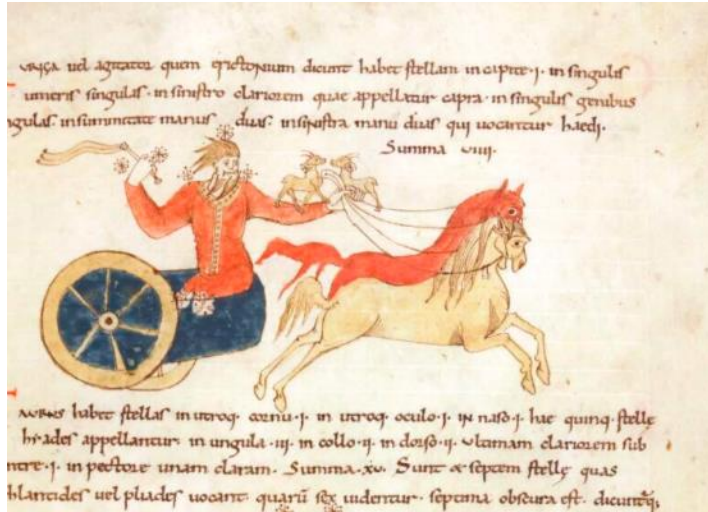 uriga uel agitator quem erictonium dicunt habet stellam in capite ·i· in singulis
umeris singulas · in sinistro clariorem quae appellatur capra · in singulis genibus
ngulas · in summitate manus duas · in sinistra manu duas qui uocantur haedi ·
Summa viiii ·
aurus habet stellas in utroq· cornu ·i· in utroq· oculo ·i· in naso ·i· hae quinq· stellę
hyades appellantur · in ungula ·iii· in collo ·ii· in dorso ·ii· ultimam clariorem sub
ntre ·i· in pectore unam claram · Summa ·xv· Sunt & septem stellę quas
hlantides uel pliades uocant · quarū sex uidentur · septima obscura est · dicuntq;